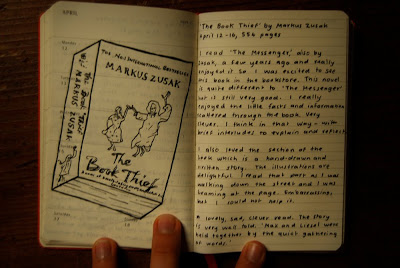 APRIL
The No.1 International Bestseller
MARKUS ZUSAK
The
Book Thief
The Book Thief
MARKUS ZUSAK
'The Book Thief' by Markus Zusak
April 12-16, 554 pages
I read 'The Messenger', also by
Zusak, a few years ago and really
enjoyed it so I was excited to see
his book in the bookstore. This novel
is quite different to 'The Messenger'
but is still very good. I really
enjoyed the little facts and information
scattered through the book. Very
clever. I think in that way - with
brief interludes to explain and reflect.
I also loved the section of the
book which is a hand-drawn and
written story. The illustrations are
delightful. I read that part as I was
walking down the street and I was
beaming at the page. Embarrassing,
but I could not help it.
A lovely, sad, clever read. The story
is very well told. 'Max and Liesel were
held together by the quiet gathering
of words.'